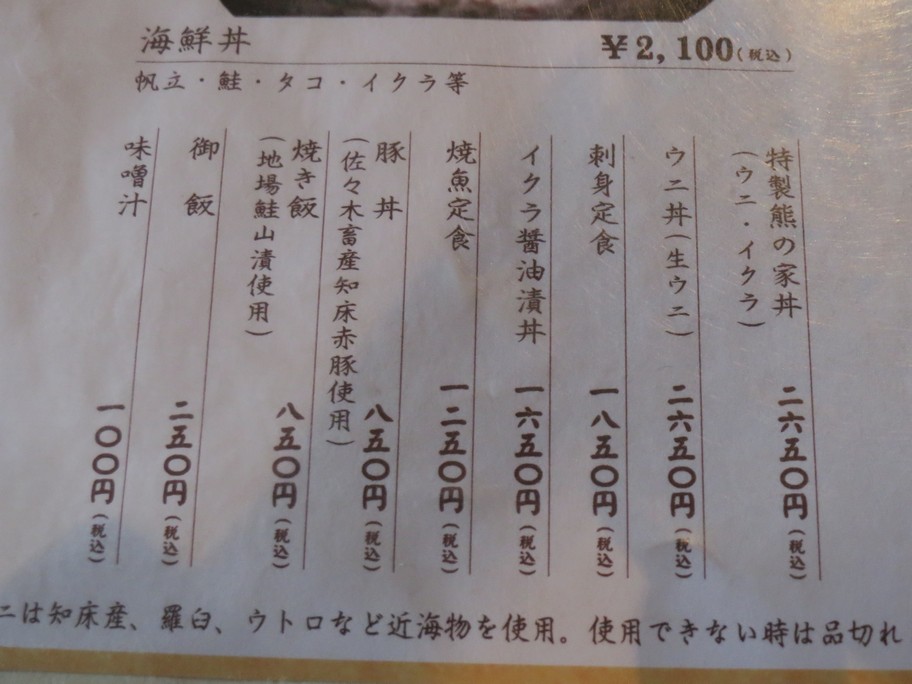 海鮮丼 ¥2,100(税込)
帆立・鮭・タコ・イクラ等
特製熊の家丼 二六五〇円(税込)
(ウニ・イクラ)
ウニ丼(生ウニ) 二六五〇円(税込)
刺身定食 一八五〇円(税込)
イクラ醤油漬丼 一六五〇円(税込)
焼魚定食 一二五〇円(税込)
豚丼 八五〇円(税込)
(佐々木畜産知床赤豚使用)
焼き飯 八五〇円(税込)
(地場鮭山漬使用)
御飯 二五〇円(税込)
味噌汁 一〇〇円(税込)
ニは知床産、羅臼、ウトロなど近海物を使用。使用できない時は品切れ